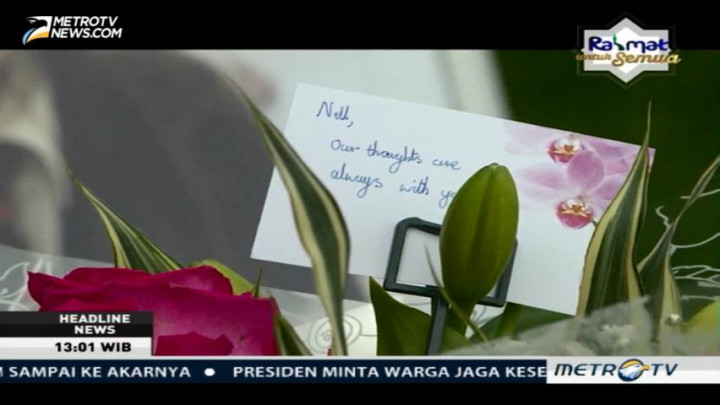 METROTV
NEWS.COM
Rahmat
untuk Semua
Nell,
our thoughts are
always with
HEADLINE
NEWS
13:01 WIB
SAMPAI KE AKARNYA ● PRESIDEN MINTA WARGA JAGA KESE
METRO TV